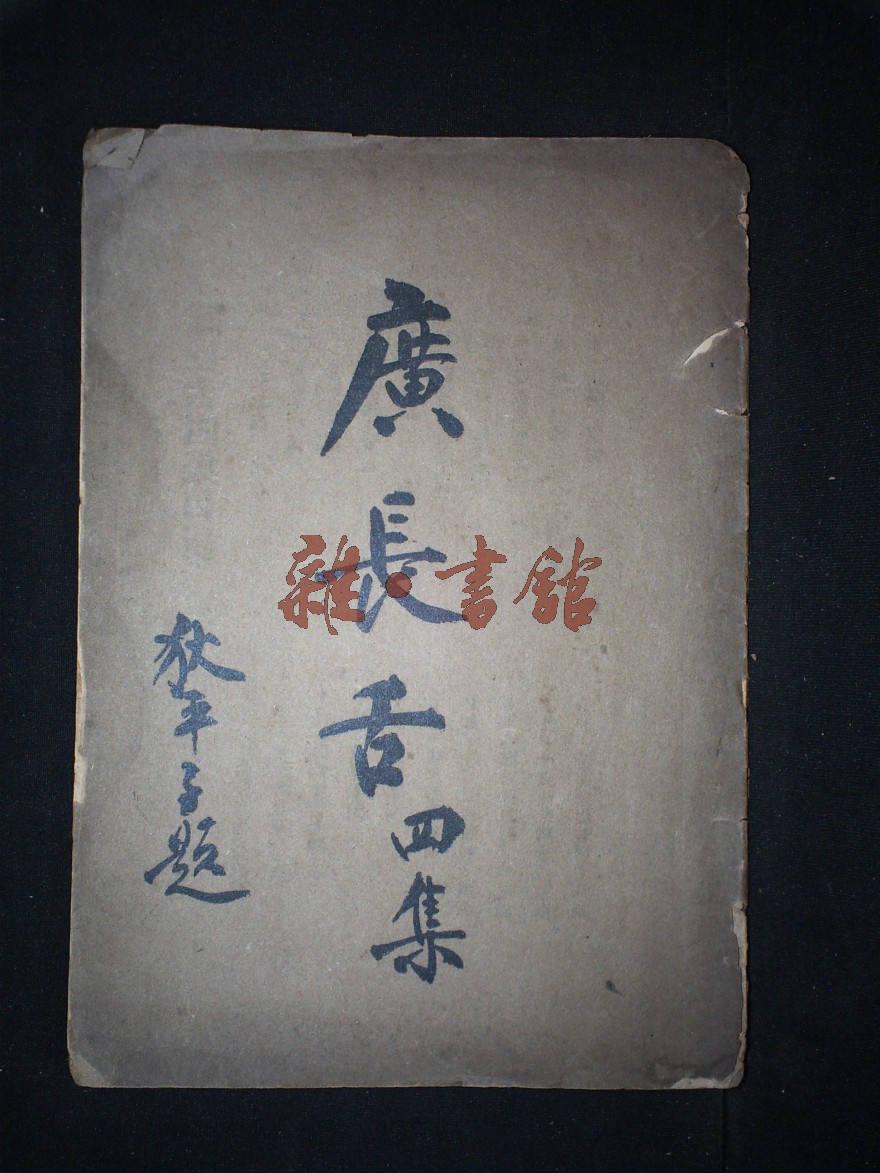 廣長舌四集
狄平子題
雜·書館